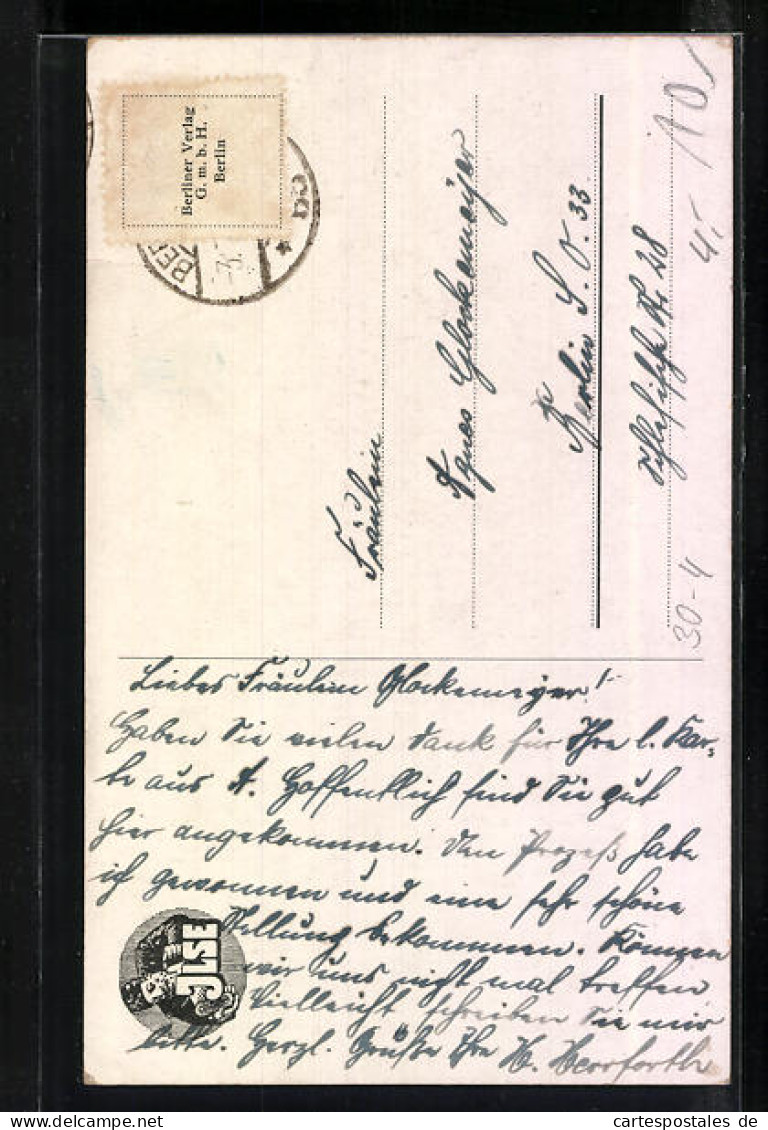 Berliner Verlag
G. m. b. H.
Berlin
BER
Fräulein
Agnes Glockemeijer
Berlin S. O. 33.
Schlesische Str. 28
10
4,-
30-4
Liebes Fräulein Glockemeijer!
Haben Sie vielen Dank für Ihre l. Kar-
te aus A. Hoffentlich sind Sie gut
hier angekommen. Den Prozeß habe
ich gewonnen und eine sehr schöne
Stellung bekommen. Können
wir uns nicht mal treffen
Vielleicht schreiben Sie mir
bitte. Herzl. Grüße Ihre H. Herrforth
JLSE
cartespostales de